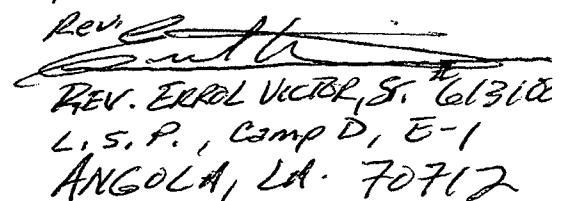 Rev.
REV. ERROL VICTOR, Sr. #
L.S.P., Camp D, E-1
ANGOLA, LA. 70712